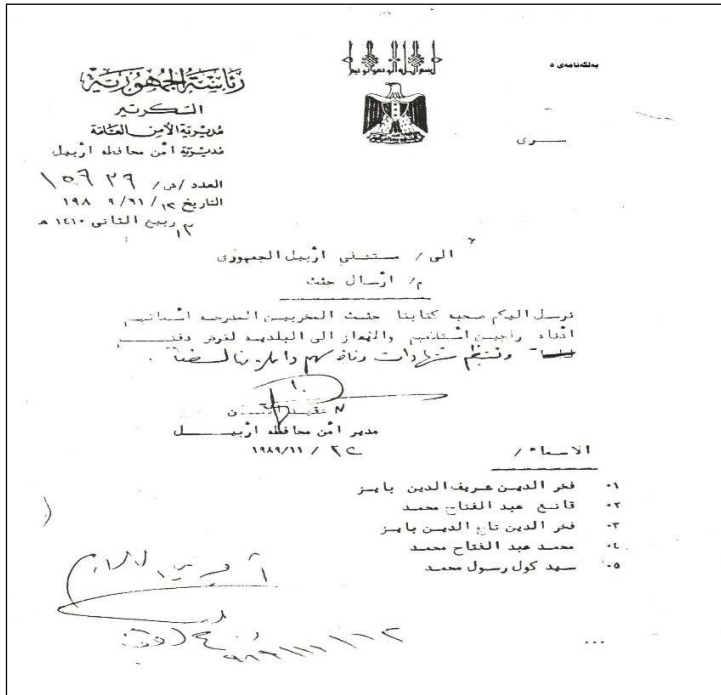 بەلگەنامەی ٥
بسم الله الرحمن الرحيم
رئاسة الجمهورية
السكرتير
مديرية الأمن العامة
مديرية أمن محافظة اربيل
سرى
العدد / س /
التاريخ ١٢ / ١١ / ١٩٨٩
١٣ ربيع الثانى ١٤١٠ هـ
الى / مستشفى اربيل الجمهورى
م / ارسال جثث
نرسل اليكم صحبة كتابنا جثث المخربين المدرجة اسمائهم
ادناه راجين استلامهم والايعاز الى البلدية لغرض دفنهم
وتنظيم شهادات وفاة لهم واعلامنا لطفا .
مدير أمن محافظة اربيل
١٩٨٩/١١/
الاسماء /
٠١ فخر الدين شريف الدين بايز
٠٢ قانع عبد الفتاح محمد
٠٣ فخر الدين تاج الدين بايز
٠٤ محمد عبد الفتاح محمد
٠٥ سيد كول رسول محمد
...